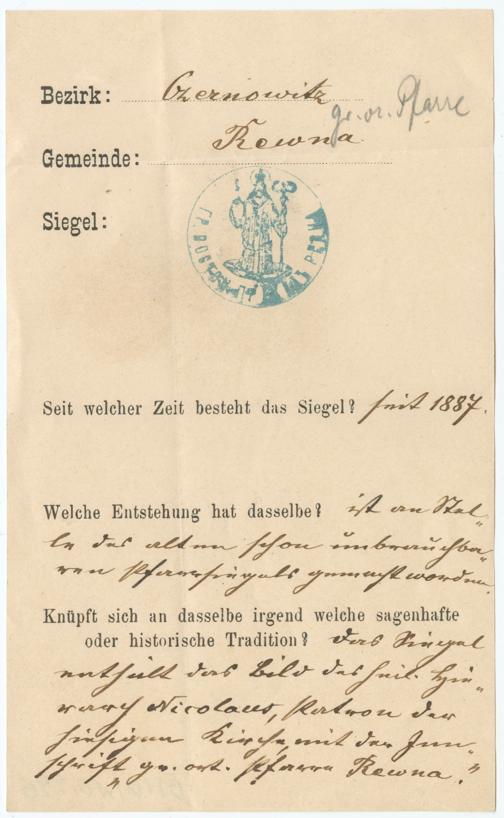 Bezirk: Czernowitz
gr. or. Pfarre
Gemeinde: Rewna
Siegel:
Seit welcher Zeit besteht das Siegel? seit 1887.
Welche Entstehung hat dasselbe? ist an Stel-
le des alten schon unbrauchba-
ren Pfarrsiegels gemacht worden.
Knüpft sich an dasselbe irgend welche sagenhafte
oder historische Tradition? Das Siegel
enthält das Bild des heil. Hie-
rarch Nicolaus, Patron der
hiesigen Kirche, mit der Inn-
schrift "gr. ort. Pfarre Rewna."